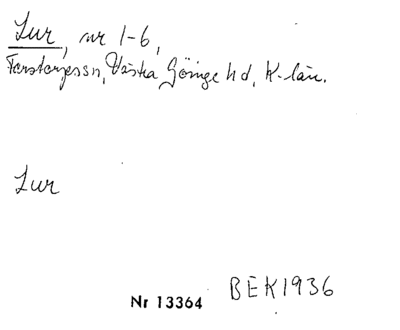 Lur, nr 1-6,
Västra Göinge hd, K-län.
Lur
Nr 13364 BEK1936